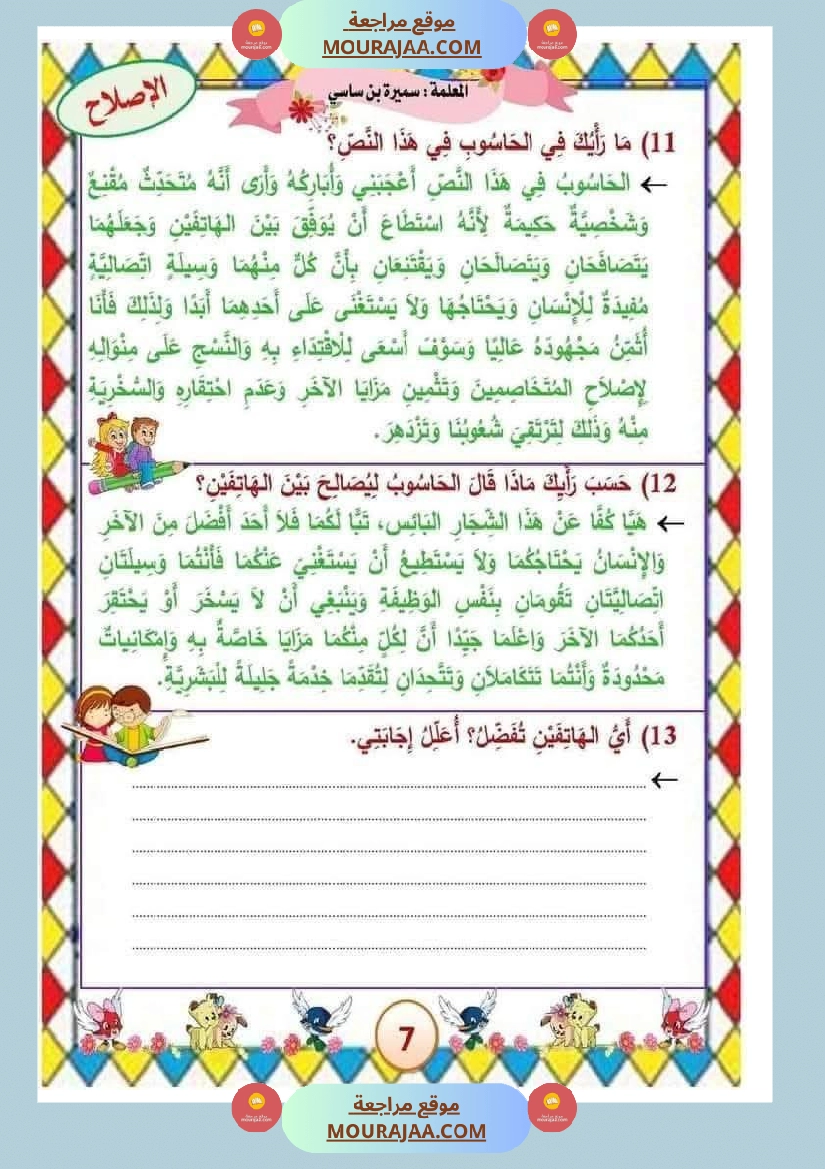 موقع مراجعة
MOURAJAA.COM
الإصلاح
المعلمة : سميرة بن ساسي
11) مَا رَأْيُكَ فِي الحَاسُوبِ فِي هَذَا النَّصِّ؟
← الحَاسُوبُ فِي هَذَا النَّصِّ أَعْجَبَنِي وَأُبَارِكُهُ وَأَرَى أَنَّهُ مُتَحَدِّثٌ مُقْنِعٌ
وَشَخْصِيَّةٌ حَكِيمَةٌ لِأَنَّهُ اسْتَطَاعَ أَنْ يُوَفِّقَ بَيْنَ الهَاتِفَيْنِ وَجَعَلَهُمَا
يَتَصَافَحَانِ وَيَتَصَالَحَانِ وَيَقْتَنِعَانِ بِأَنَّ كُلٌّ مِنْهُمَا وَسِيلَةٍ اتِّصَالِيَّةٍ
مُفِيدَةٌ لِلْإِنْسَانِ وَيَحْتَاجُهَا وَلاَ يَسْتَغْنَى عَلَى أَحَدِهِمَا أَبَدًا وَلِذَلِكَ فَأَنَا
أُثَمِّنُ مَجْهُودَهُ عَالِيًا وَسَوْفَ أَسْعَى لِلْاقْتِدَاءِ بِهِ وَالنَّسْجِ عَلَى مِنْوَالِهِ
لِإِصْلَاحِ المُتَخَاصِمِينَ وَتَثْمِينِ مَزَايَا الآخَرِ وَعَدَمِ احْتِقَارِهِ وَالسُّخْرِيَةِ
مِنْهُ وَذَلِكَ لِتَرْتَقِيَ شُعُوبُنَا وَتَزْدَهِرَ.
12) حَسَبَ رَأْيِكَ مَاذَا قَالَ الحَاسُوبُ لِيُصَالِحَ بَيْنَ الهَاتِفَيْنِ؟
← هَيَّا كُفَّا عَنْ هَذَا الشِّجَارِ البَائِسِ، تَبًّا لَكُمَا فَلاَ أَحَدَ أَفْضَلَ مِنَ الآخَرِ
وَالإِنْسَانُ يَحْتَاجُكُمَا وَلاَ يَسْتَطِيعُ أَنْ يَسْتَغْنِيَ عَنْكُمَا فَأَنْتُمَا وَسِيلَتَانِ
اتِّصَالِيَّتَانِ تَقُومَانِ بِنَفْسِ الوَظِيفَةِ وَيَنْبَغِي أَنْ لاَ يَسْخَرَ أَوْ يَحْتَقِرَ
أَحَدُكُمَا الآخَرَ وَاعْلَمَا جَيِّدًا أَنَّ لِكُلٍّ مِنْكُمَا مَزَايَا خَاصَّةٌ بِهِ وَإِمْكَانِيَاتٌ
مَحْدُودَةٌ وَأَنْتُمَا تَتَكَامَلاَنِ وَتَتَّحِدَانِ لِتُقَدِّمَا خِدْمَةً جَلِيلَةً لِلْبَشَرِيَّةِ.
13) أَيُّ الهَاتِفَيْنِ تُفَضِّلُ؟ أُعَلِّلُ إِجَابَتِي.
←
7
موقع مراجعة
MOURAJAA.COM